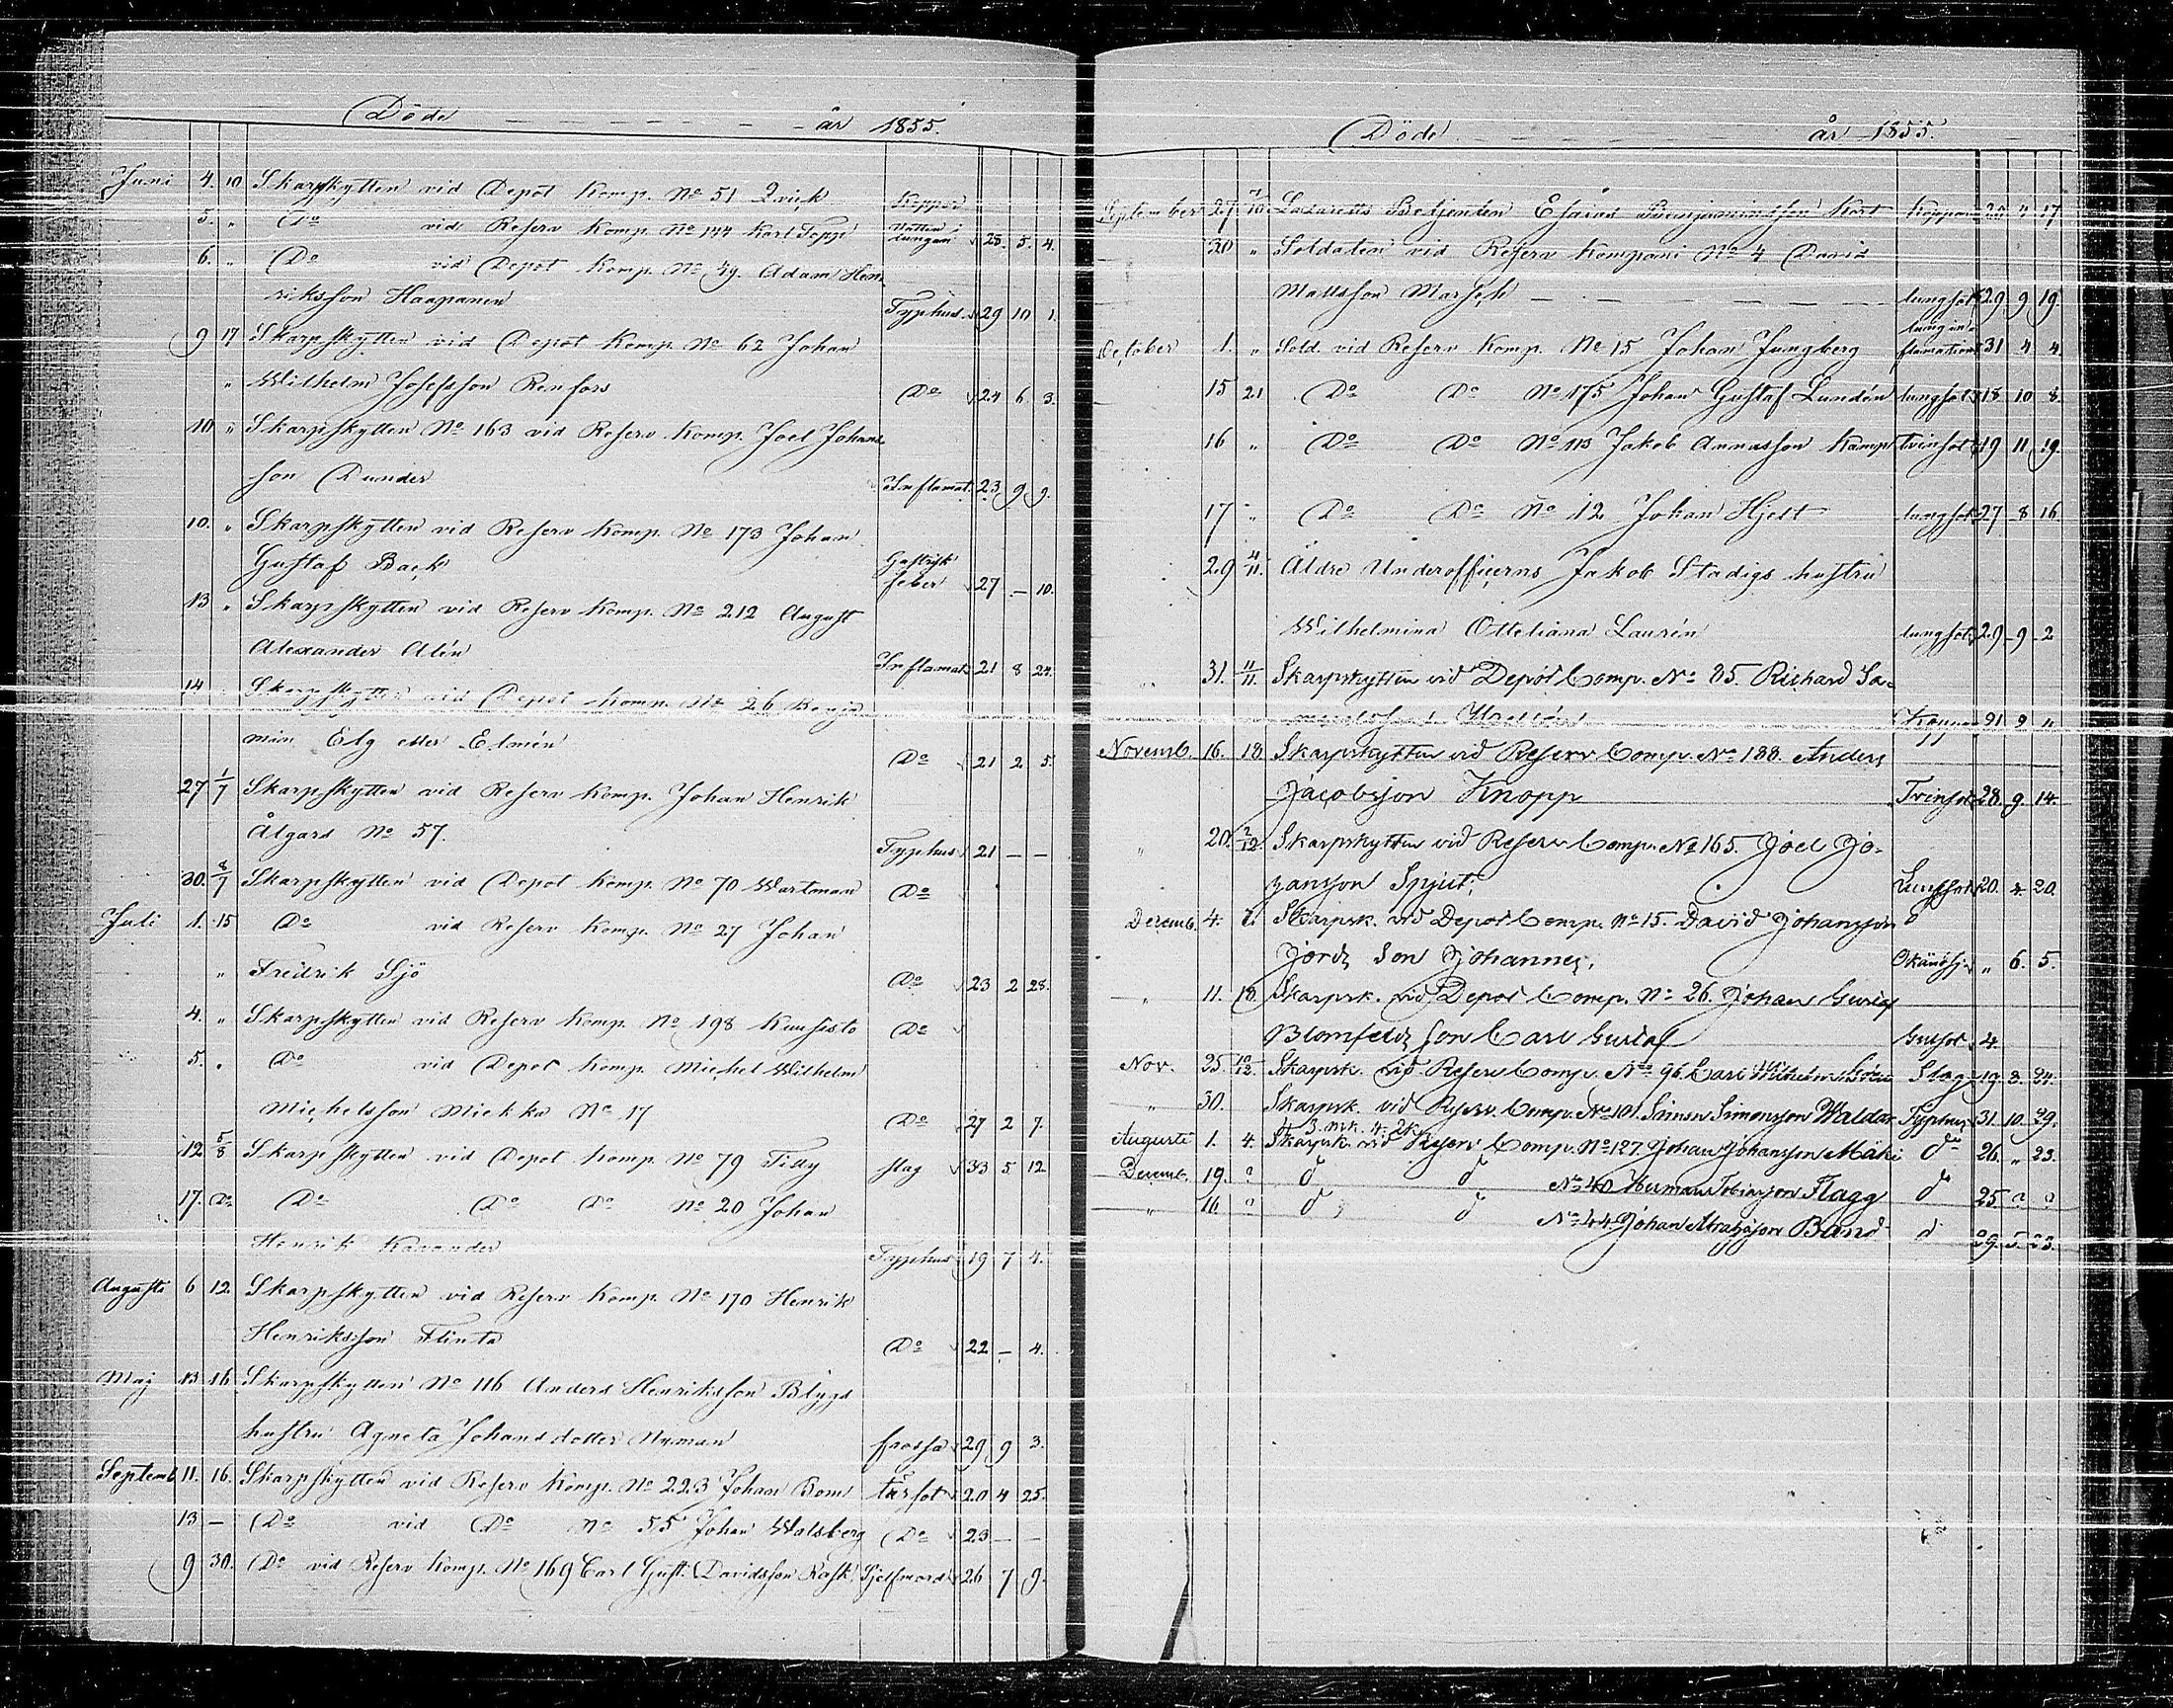 Döde år 1855.
Juni 4. 10 Skarpskytten vid Depôt Komp. No 51 Qvick Koppor
5. " Do vid Reserv Komp. No 144 Karl Topp lungan 28. 5. 4.
6. " Do vid Depôt Komp. No 49. Adam Hen
riksson Haapanen Typhus 29 10 1.
9 17 Skarpskytten vid Depôt Komp No 62 Johan
" Wilhelm Josefsson Renfors Do 24 6 3.
10 " Skarpskytten No 163 vid Reserv Komp. Joel Johans
son Dunder Inflamat. 23 9 9.
10. " Skarpskytten vid Reserv Komp. No 173 Johan
Gustaf Back Gastrisk feber 27 – 10.
13 " Skarpskytten vid Reserv Komp. No 212 August
Alexander Alén Inflamat 21 8 24.
14 Skarpskytten vid Depot Komp. No 26 Benja
min Elg eller Elmén Do 21 2 5.
27 1/7 Skarpskytten vid Reserv Komp. Johan Henrik
Ålgard No 57. Typhus 21 – –
30. 8/7 Skarpskytten vid Depot Komp. No 70 Wartman Do
Juli 1. 15 Do vid Reserv Komp. No 27 Johan
" Fredrik Sjö Do 23 2 28.
4. " Skarpskytten vid Reserv Komp. No 198 Kunsisto Do
5. " Do vid Depot Komp. Michel Wilhelm
Michelsson Miekka No 17 Do 27 2 7.
12 5/8 Skarpskytten vid Depot Komp No 79 Tilly slag 33 5 12
17. Do Do Do Do No 20 Johan
Henrik Kavander Typhus 19 7 4.
Augusti 6 12. Skarpskytten vid Reserv Komp. No 170 Henrik
Henriksson Flinta Do 22 – 4.
Maj 13 16 Skarpskytten No 116 Anders Henriksson Blygs
hustru Agneta Johansdotter Nyman frossa 29 9 3.
Septemb 11. 16. Skarpskytten vid Reserv Komp. No 223 Johan Bom tärsot 20 4 25.
13 – Do vid Do No 55 Johan Walsberg Do 23 – –
9 30. Do vid Reserv Komp. No 169 Carl Gust. Davidsson Rask Sjelfmord 26 7 9.
Döde år 1855.
September 27 7/10 Lazaretts Betjenten Esaias Benjaminsson Kort Koppor 20 4 17
30 " Soldaten vid Reserv Kompani No 4 David
Mattsson Marsch lungsot 29 9 19
October 1. " Sold. vid Reserv Komp. No 15 Johan Jungberg lungin flamation 31 4 4.
15 21 Do Do No 175 Johan Gustaf Lundén lungsot 18 10 8.
16 " Do Do No 113 Jakob Annasson Kamp tvinsot 19 11 19.
17 " Do Do No 12 Johan Hjelt lungsot 27 8 16
29 4/11. Äldre Underofficerns Jakob Stadigs hustru
Wilhelmina Otteliana Laurén lungsot 29 9 2
31. 11/11. Skarpskytten vid Depôt Comp. No 35. Richard Sa-
Koppor 21 9 11
Novemb. 16. 18 Skarpskytten vid Reserv Comp. No 188. Anders
Jacobsson Knopp Tvinsot 28. 9. 14.
" 20. 2/12. Skarpskytten vid Reserv Comp. No 165. Joel Jo-
hansson Spjut; Lungsot 20. 4. 20.
Decemb. 4. Skarpsk. vid Depôt Comp. No 15. David Johansson
Jords Son Johannes, Okänd sj. " 6. 5.
" 11. 18. Skarpsk. vid Depôt Comp. No 26. Johan Gustaf
Blomfelds Son Carl Gustaf 4.
Nov. 25. 10/12. Skarpsk. vid Reserv Comp. No 96. Carl Wilhelm Slag 19. 3. 24.
" 30. Skarpsk. vid Reserv. Comp. No 101. Simon Simonsson Waldar Typhus 31. 10. 29.
Augusti 1. 4. Skarpsk. vid Reserv Comp. No 127. Johan Johansson Mäki do 26. " 23.
Decemb. 19. ? d d No 40 Herman Tobiasson Flagg do 25. ? ?
" 16. ? d d No 44. Johan Abrahsson Band d 29. 5. 23.